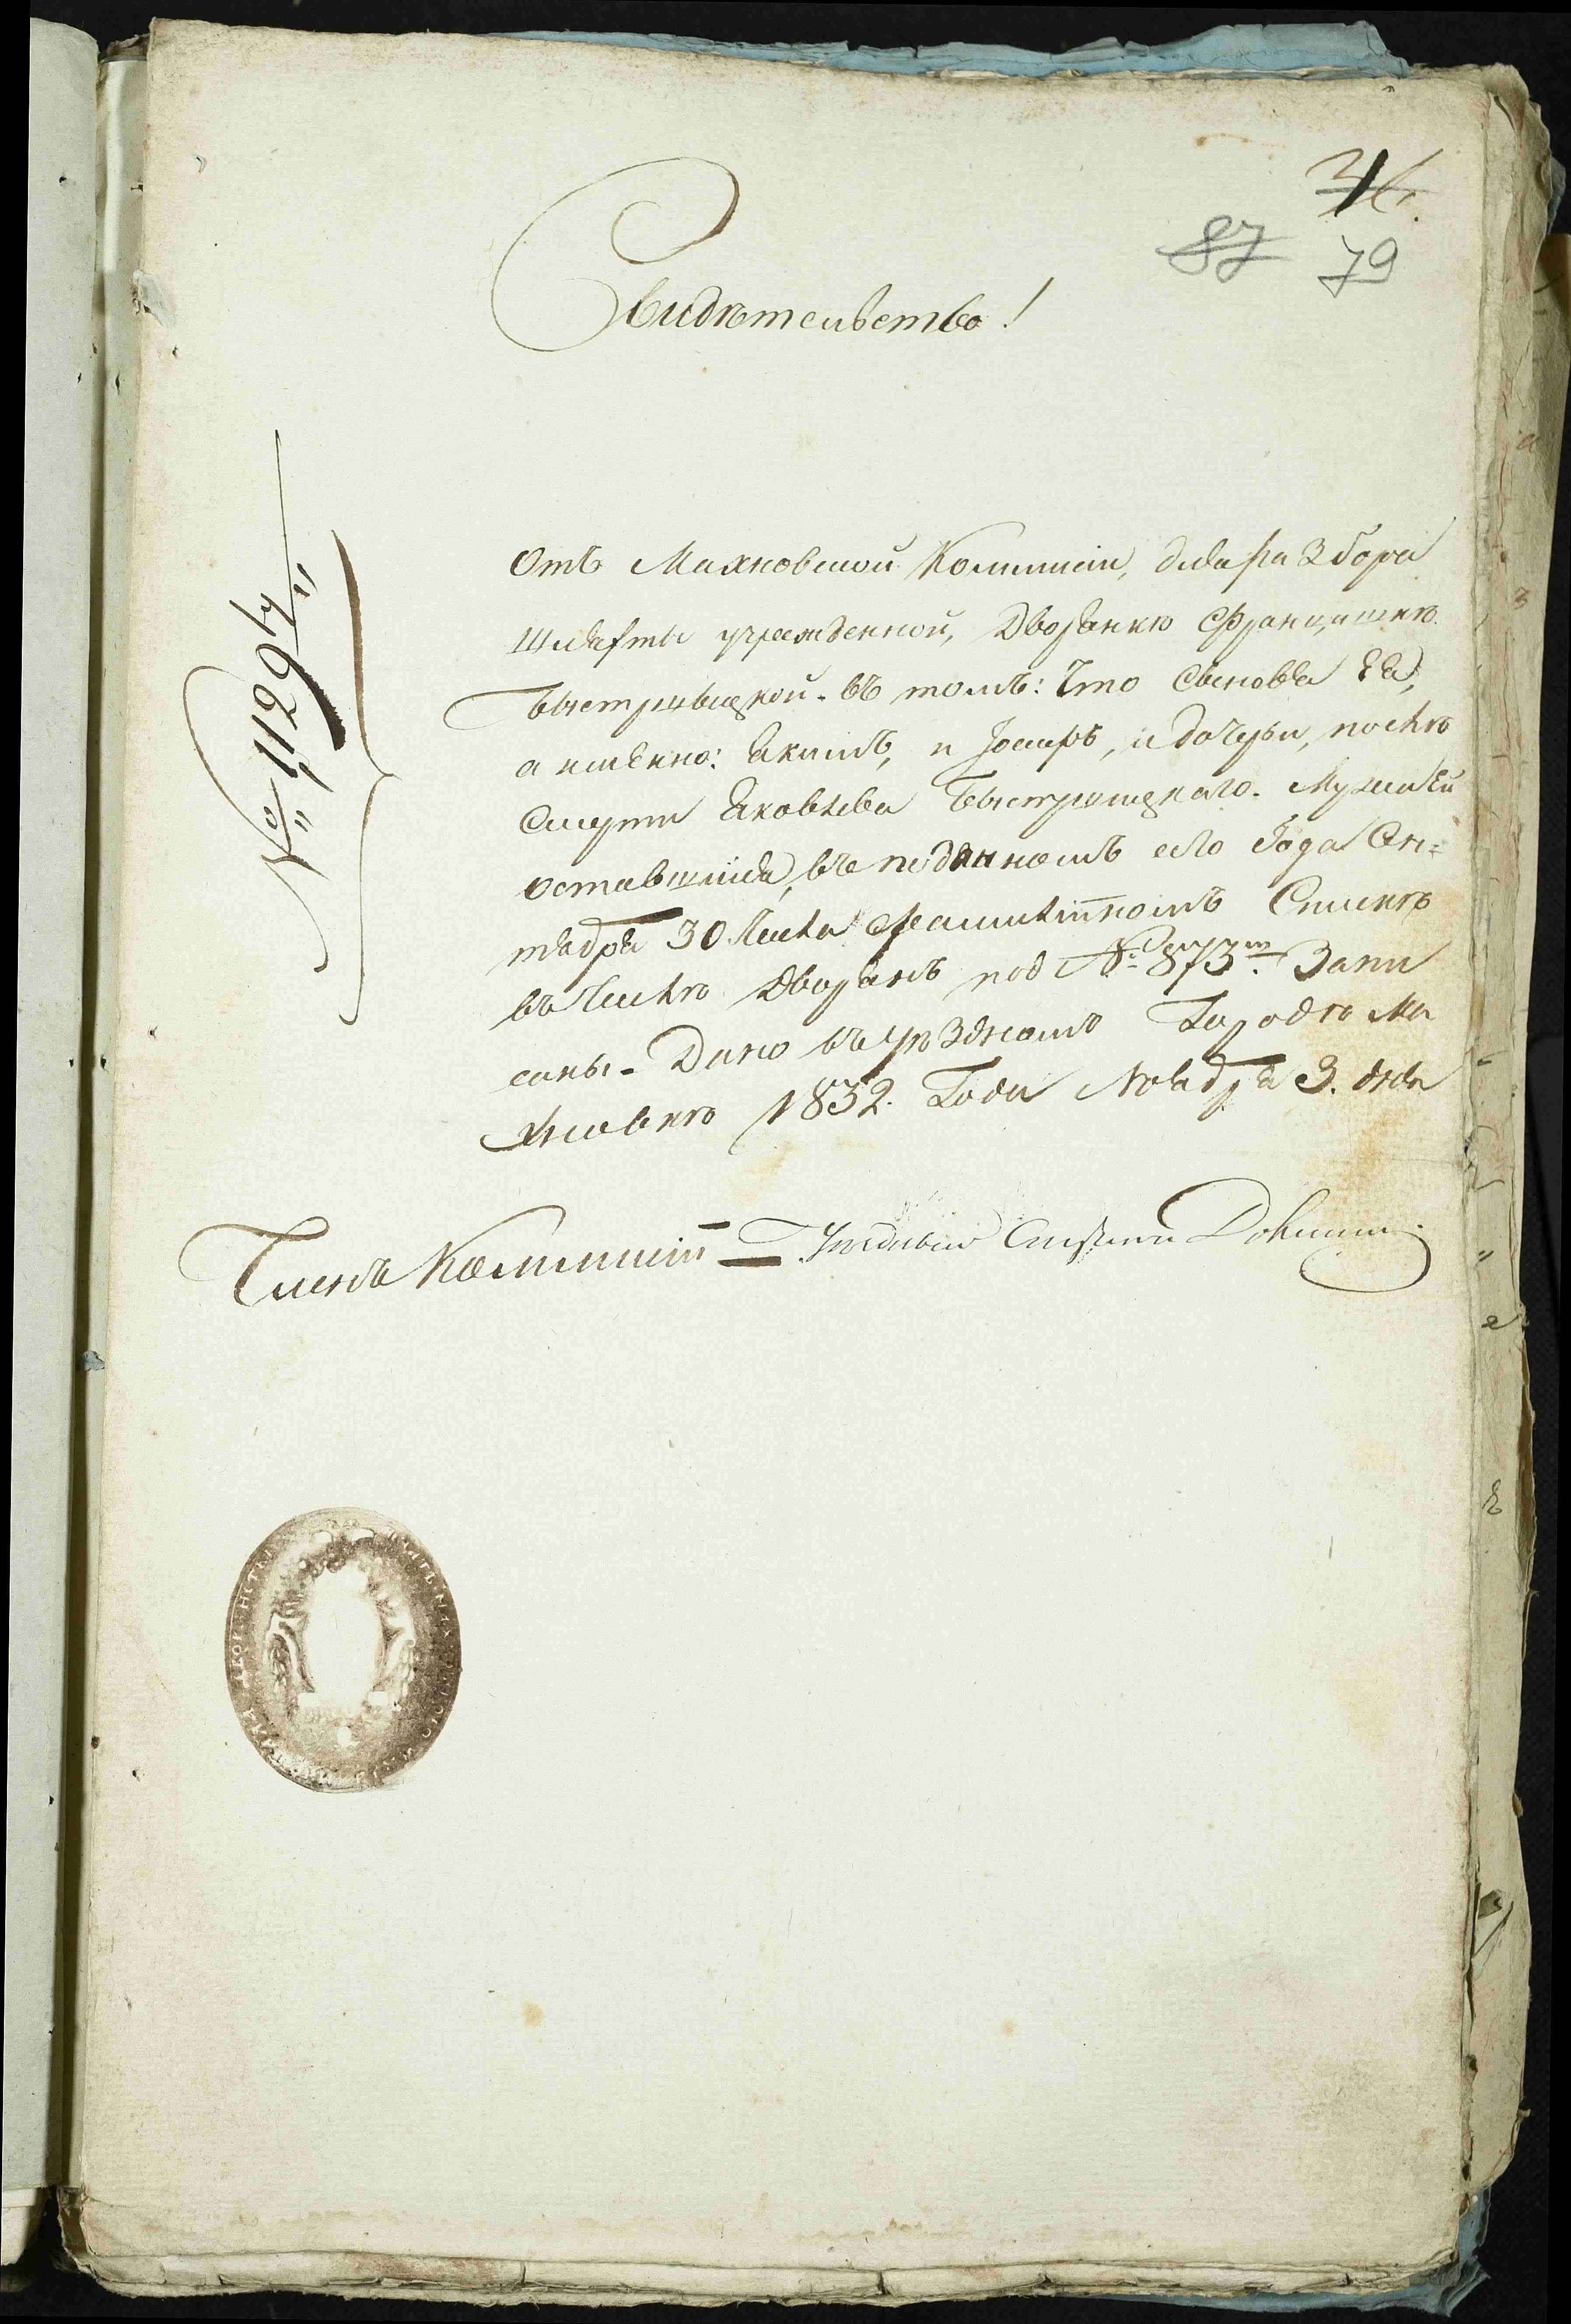 87 79
Свидѣтельство!
№ 1129
Отъ Махновской Коммисіи, для разбора
Шляхты учрежденной, Дворянкѣ Францишкѣ
Быстршыцкой. въ томъ: что Сыновья Ея,
а именно: Якимъ, и Іосифъ, и дочери, послѣ
Смерти Яковлева Быстршицкаго. Мужа Ей
оставшіися, въ поданномъ сего Года Сен=
тября 30 Числа фамилійномъ Спискѣ
въ Числѣ Дворянъ под № 873м. Запи
саны. Дано въ уѣздномъ Городѣ Ма
хновкѣ 1832. Года Ноября 3. дня
Членъ Коммисіи Уѣздный